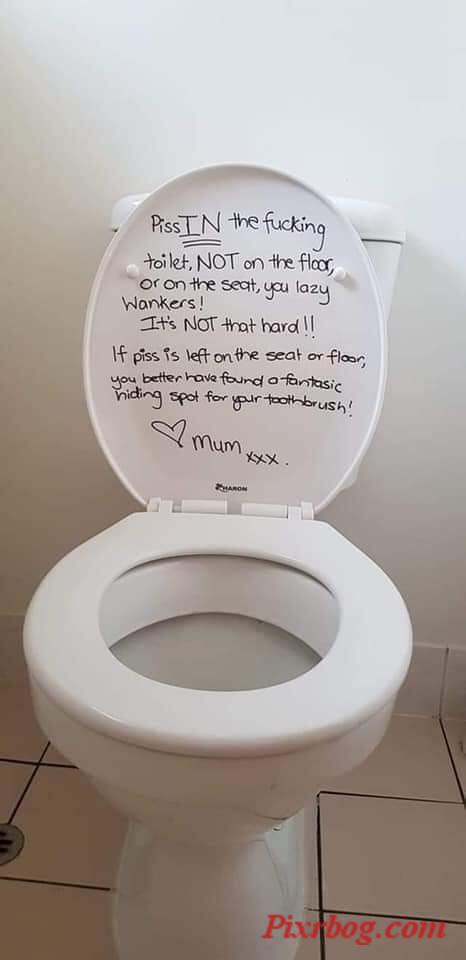 Piss IN the fucking
toilet, NOT on the floor,
or on the seat, you lazy
Wankers!
It's NOT that hard!!
If piss is left on the seat or floor,
you better have found a fantasic
hiding spot for your toothbrush!
♡ mum xxx.
HARON
Pixrbog.com